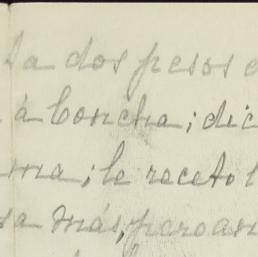 dos pesos
á Concha; dic
ma; le receto l
sa más, pero an